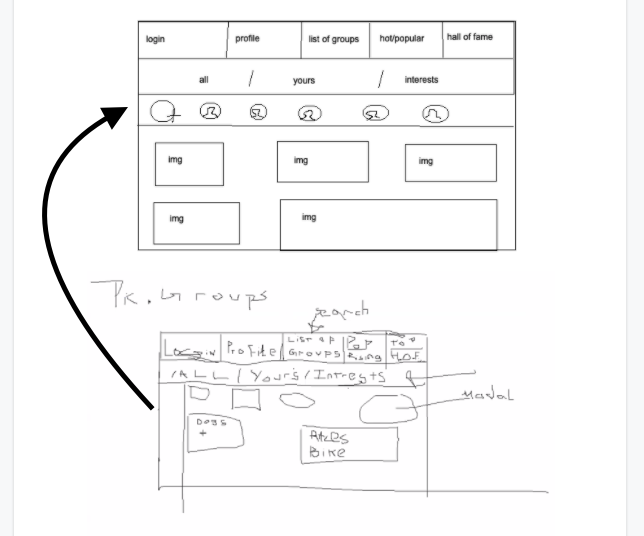 login profile list of groups hot/popular hall of fame
all / yours / interests
img img img
img img
Pr. Groups
search
Login Profile List of Groups Pop Rising Top H.O.F.
/ALL / Yours/Intrests
Modal
Dogs
+
Bike